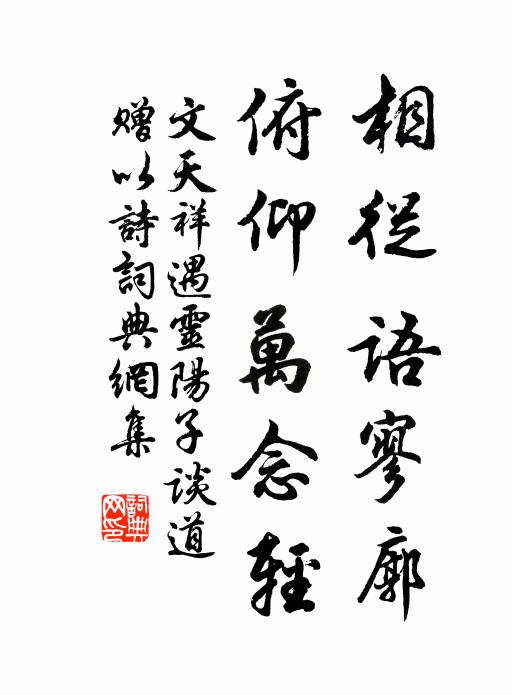 相從語寥廓
俯仰萬念輕
文天祥遇靈陽子談道
赠以詩詞典網集
詞典網印